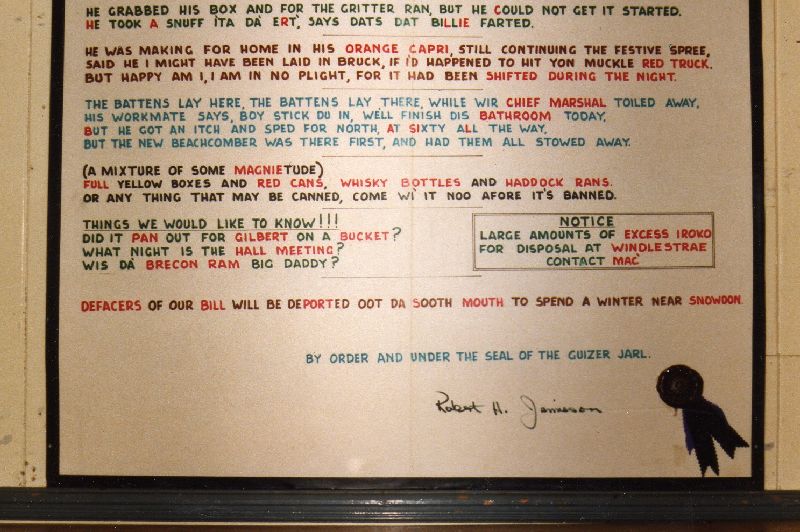 HE GRABBED HIS BOX AND FOR THE GRITTER RAN, BUT HE COULD NOT GET IT STARTED.
HE TOOK A SNUFF ITA DA' ERT', SAYS DATS DAT BILLIE FARTED.
HE WAS MAKING FOR HOME IN HIS ORANGE CAPRI, STILL CONTINUING THE FESTIVE SPREE,
SAID HE I MIGHT HAVE BEEN LAID IN BRUCK, IF I'D HAPPENED TO HIT YON MUCKLE RED TRUCK.
BUT HAPPY AM I, I AM IN NO PLIGHT, FOR IT HAD BEEN SHIFTED DURING THE NIGHT.
THE BATTENS LAY HERE, THE BATTENS LAY THERE, WHILE WIR CHIEF MARSHAL TOILED AWAY,
HIS WORKMATE SAYS, BOY STICK DU IN, WE'LL FINISH DIS BATHROOM TODAY,
BUT HE GOT AN ITCH AND SPED FOR NORTH, AT SIXTY ALL THE WAY,
BUT THE NEW BEACHCOMBER WAS THERE FIRST, AND HAD THEM ALL STOWED AWAY.
(A MIXTURE OF SOME MAGNIETUDE)
FULL YELLOW BOXES AND RED CANS, WHISKY BOTTLES AND HADDOCK RANS.
OR ANY THING THAT MAY BE CANNED, COME WI' IT NOO AFORE IT'S BANNED.
THINGS WE WOULD LIKE TO KNOW!!!
DID IT PAN OUT FOR GILBERT ON A BUCKET?
WHAT NIGHT IS THE HALL MEETING?
WIS DA' BRECON RAM BIG DADDY?
NOTICE
LARGE AMOUNTS OF EXCESS IROKO
FOR DISPOSAL AT WINDLESTRAE
CONTACT MAC'
DEFACERS OF OUR BILL WILL BE DEPORTED OOT DA SOOTH MOUTH TO SPEND A WINTER NEAR SNOWDON.
BY ORDER AND UNDER THE SEAL OF THE GUIZER JARL.
Robert H. Jamieson